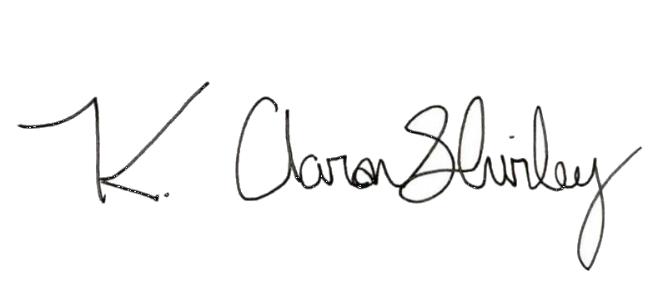 K. Aaron Shirley